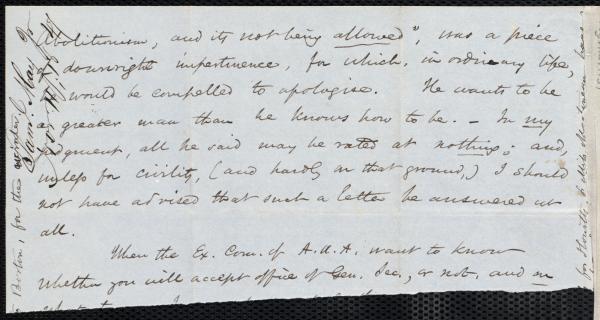 Abolitionism, and its not being allowed", was a piece
downright impertinence, for which, in ordinary life,
would be compelled to apologise. He wants to be
a greater man than he knows how to be. – In my
judgment, all he said may be rated at nothing; and,
unless for civility, (and hardly on that ground,) I should
not have advised that such a letter be answered at
all.
When the Ex. Com. of A.S.A. want to know
whether you will accept office of Gen. Sec., or not, and on
Boston, for the
Sam. May Jr.